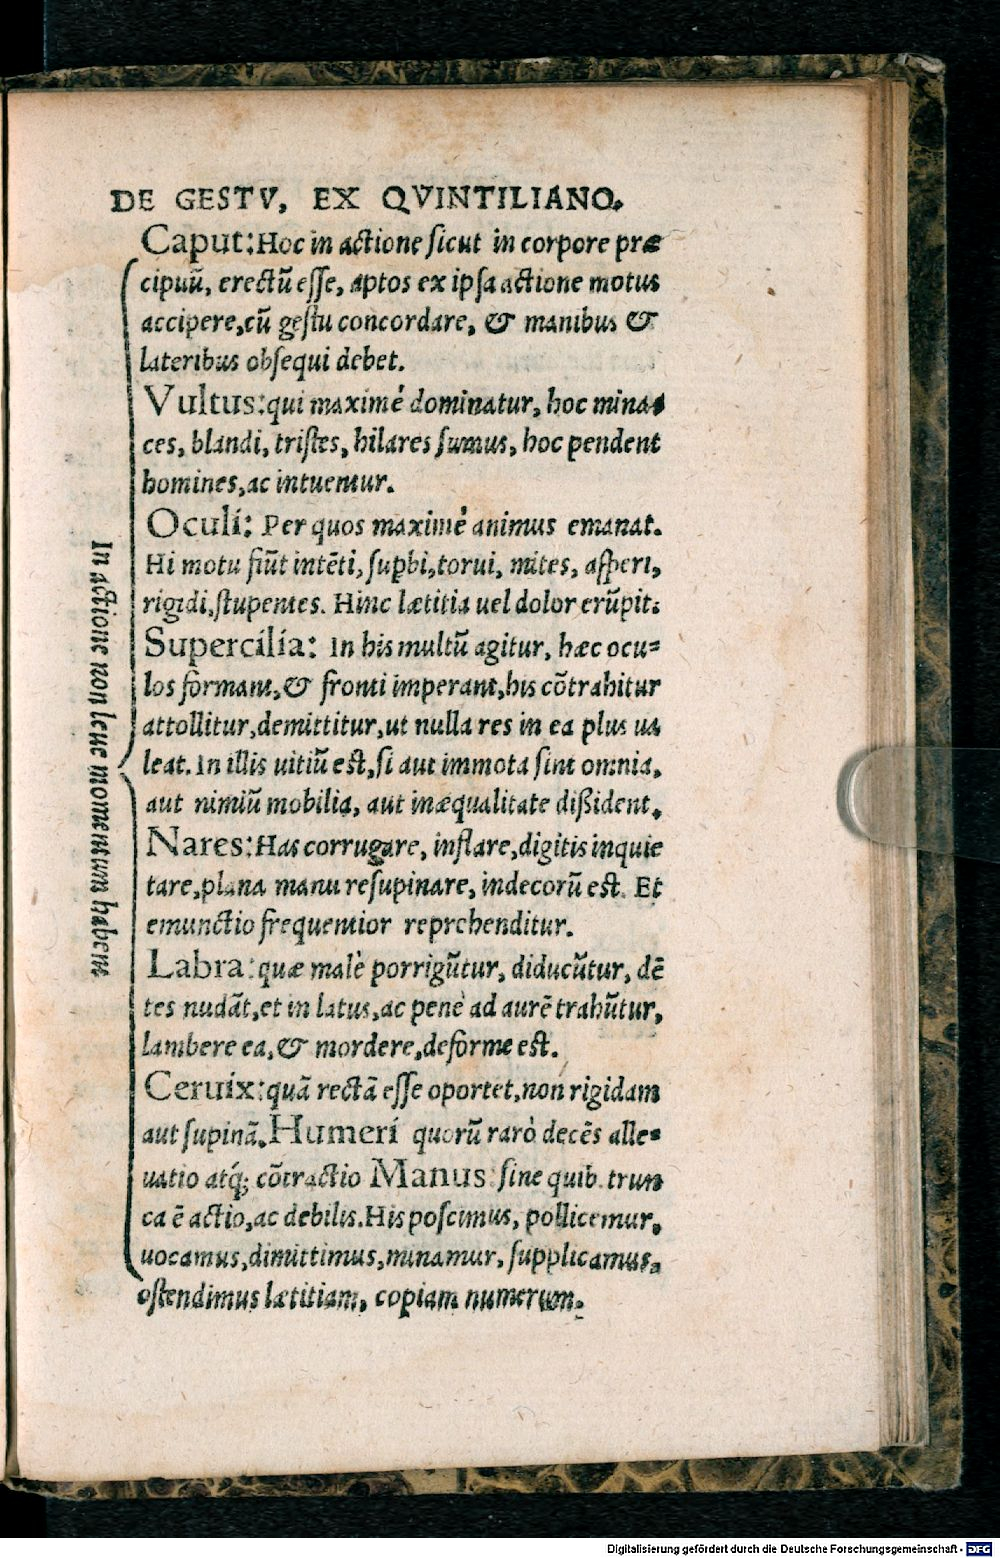 DE GESTV, EX QVINTILIANO.
Caput: Hoc in actione sicut in corpore præ
cipuũ, erectũ esse, aptos ex ipsa actione motus
accipere, cũ gestu concordare, & manibus &
lateribus obsequi debet.
Vultus: qui maximè dominatur, hoc mina-
ces, blandi, tristes, hilares sumus, hoc pendent
homines, ac intuentur.
Oculi: Per quos maximè animus emanat.
Hi motu fiũt intẽti, supbi, torui, mites, asperi,
rigidi, stupentes. Hinc lætitia uel dolor erũpit.
Supercilia: In his multũ agitur, hæc ocu=
los formant, & fronti imperant, his cõtrahitur
attollitur, demittitur, ut nulla res in ea plus ua
leat. In illis uitiũ est, si aut immota sint omnia,
aut nimiũ mobilia, aut inæqualitate dißident.
Nares: Has corrugare, inflare, digitis inquie
tare, plana manu resupinare, indecorũ est. Et
emunctio frequentior reprehenditur.
Labra: quæ malè porrigũtur, diducũtur, dẽ
tes nudãt, et in latus, ac penè ad aurẽ trahũtur,
lambere ea, & mordere, deforme est.
Ceruix: quã rectã esse oportet, non rigidam
aut supinã. Humeri quorũ rarò decẽs alle-
uatio atq́; cõtractio Manus: sine quib. trun
ca ẽ actio, ac debilis. His poscimus, pollicemur,
uocamus, dimittimus, minamur, supplicamus,
ostendimus lætitiam, copiam numerum.
In actione non leue momentum habent
Digitalisierung gefördert durch die Deutsche Forschungsgemeinschaft - DFG